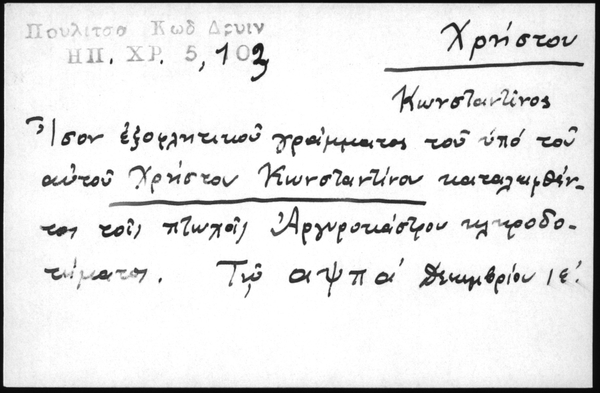 Πουλιτσα Κωδ Δρυιν
ΗΠ. ΧΡ. 5, 103
Χρήστου
Κωνσταντῖνος
Ἴσον ἐξοφλητικοῦ γράμματος τοῦ ὑπό τοῦ
αὐτοῦ Χρήστου Κωνσταντίνου καταλειφθέν-
τος τοῖς πτωχοῖς Ἀργυροκάστρου κληροδο-
τήματος. Τῷ αψπα΄ Δεκεμβρίου ιε΄.